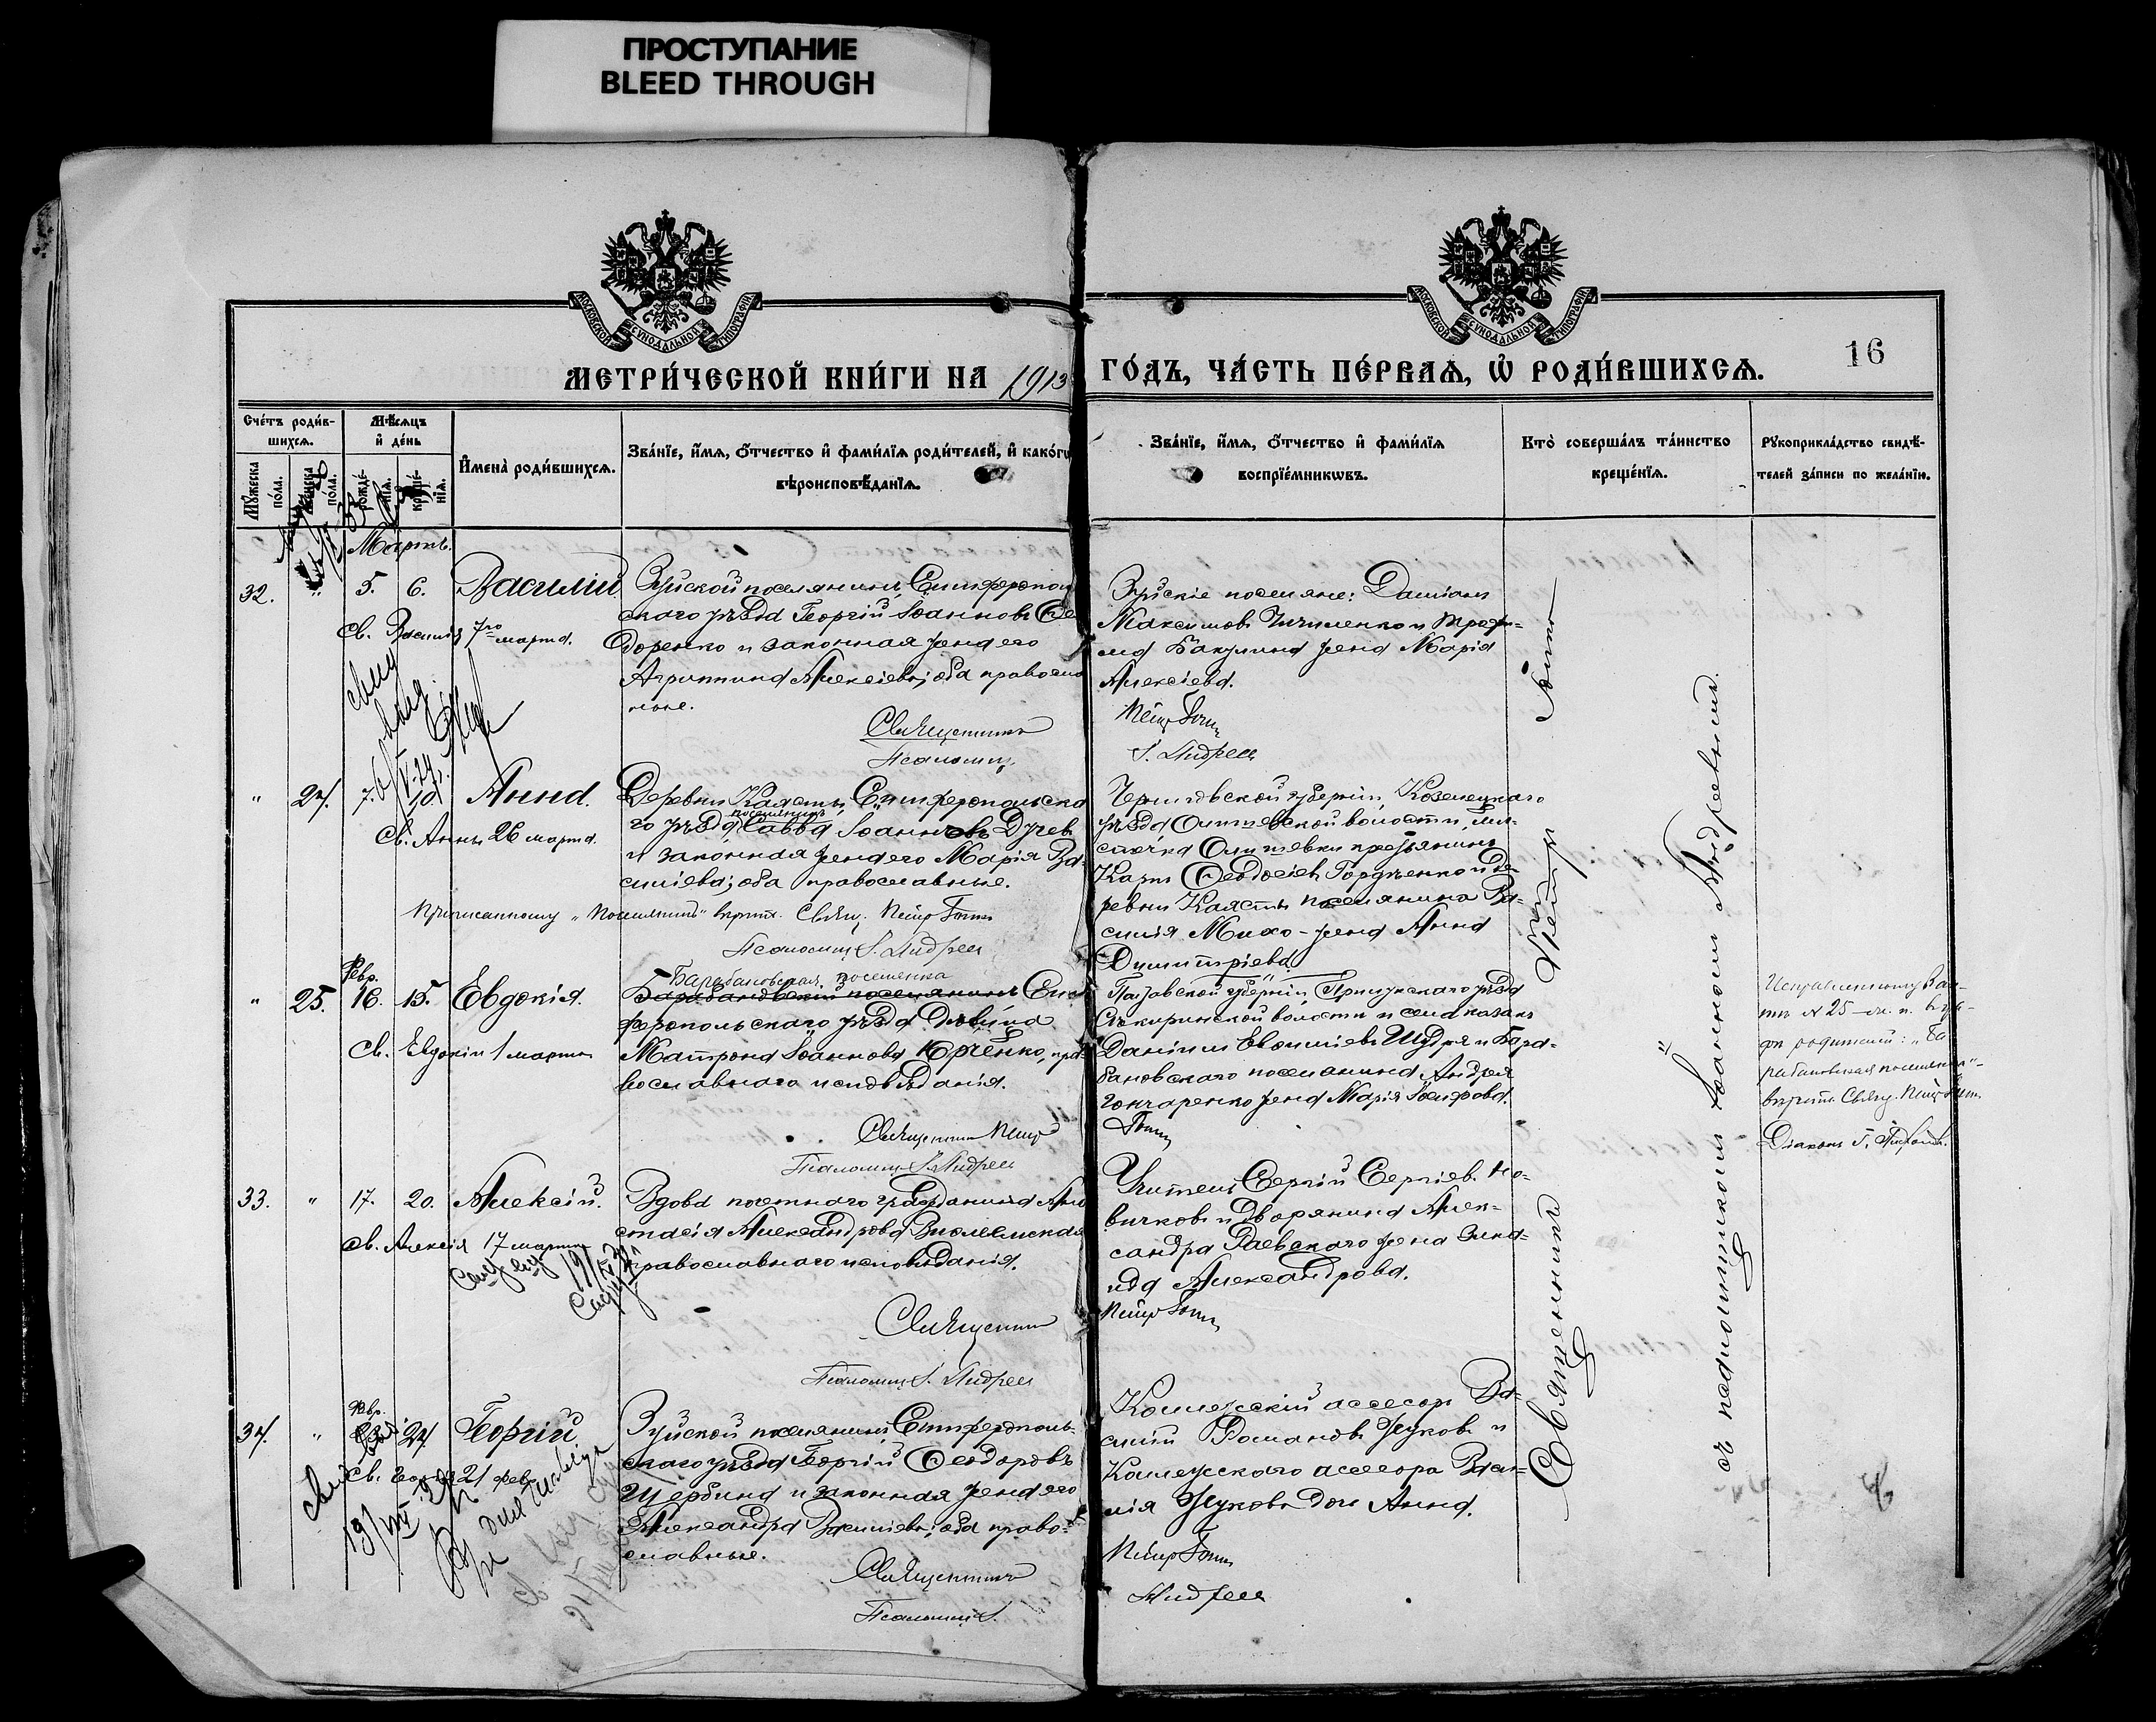 ПРОСТУПАНИЕ
BLEED THROUGH
МОСКОВСКОЙ СѴНОДАЛЬНОЙ ТИПОГРАФІИ
МОСКОВСКОЙ СѴНОДАЛЬНОЙ ТИПОГРАФІИ
16
МЕТРИ́ЧЕСКОЙ КНИ́ГИ НА 1913 ГО́ДЪ, ЧА́СТЬ ПЕ́РВАѦ, Ѡ҆ РОДИ́ВШИХСѦ.
Сче́тъ роди́в-
шихсѧ.
Мꙋжеска по́ла.
Женска по́ла.
Мѣ́сѧцъ
и҆ де́нь
рожде́-
нїѧ.
креще́-
нїѧ.
И҆мена̀ роди́вшихсѧ.
Зва́нїе, и҆́мѧ, ѻ҆́тчество и҆ фами́лїѧ роди́телей, и҆ како́гѡ
вѣроисповѣ́данїѧ.
Зва́нїе, и҆́мѧ, ѻ҆́тчество и҆ фами́лїѧ
воспрїе́мникѡвъ.
Кто̀ соверша́лъ та́инство
креще́нїѧ.
Рꙋкоприкла́дство свидѣ́-
телей за́писи по жела́нїю.
Мартъ.
32. " 5. 6. Василій
св. Василія 7го марта.
Зуйской поселянинъ Симферополь
скаго уѣзда Георгій Іоанновъ Ѳе
доренко и законная жена его
Агриппина Алексіева; оба православ
ные.
Священникъ
Псаломщ.
Зуйскіе поселяне: Даміанъ
Максимовъ Чичиленко и Трофи=
ма Бакулина жена Марія
Алексіева.
Петръ
І. Андреев
" 24. 7. 10. Анна.
св. Анны 26 марта.
Деревни Каясты, Симферопольска
го уѣзда поселянинъ Савва Іоанновъ Дучев
и законная жена его Марія Ва=
силіева; оба православные.
Приписанному „поселянинъ" вѣрить. Свящ. Петръ
Псаломщ. І. Андреев
Черниговской губерніи, Козелецкаго
уѣзда Олишевской волости, мѣ=
стечка Олишевки крестьянинъ
Карпъ Ѳеодосіевъ Гордѣенко и де
ревни Каясты поселянина Ва=
силія Михо- жена Анна
Димитріева.
Февр.
" 25. 16. 15. Евдокія.
св. Евдокіи 1 марта
Барабановская поселянка
Барабановскій поселянинъ Сим
феропольскаго уѣзда дѣвица
Матрона Іоаннова Юрченко, пра
вославнаго исповѣданія.
Священникъ Петръ
Псаломщ. І. Андреев
Полтавской губерніи, Прилукскаго уѣзда
волости и села казакъ
Даніилъ Евѳиміевъ Щудря и Бара=
бановскаго поселянина Андрея
Гончаренко жена Марія Іосифова.
Исправленному въ ак=
тѣ № 25 ж. п. въ гра=
фѣ родителей: „Ба
рабановская поселянка"-
вѣрить Свящ. Петръ
Діаконъ
33. " 17. 20. Алексій.
св. Алексія 17 марта
Вдова почетнаго гражданина Ана
стасія Александрова Виолемская
православнаго исповѣданія.
Священникъ
Псаломщ. І. Андреев
Учитель Сергій Сергіев. Но=
вичковъ и Дворянина Алек=
сандра Раевскаго жена Зина=
ида Александрова.
Петръ
Февр.
34. " 24 Георгій
св. Георгія 21 фев.
19/VIII
Зуйской поселянинъ, Симферополь=
скаго уѣзда Георгій Ѳеодоровъ
Щербина и законная жена его
Александра Василіева; оба право=
славные.
Священникъ
Псаломщ. І.
Коллежскій ассесоръ Ва=
силій Романовъ Жуковъ и
Коллежскаго ассесора Васи=
лія Жукова дочь Анна.
Петръ
Андреев
Священникъ Петръ
съ псаломщикомъ Іоанномъ Андреевымъ.